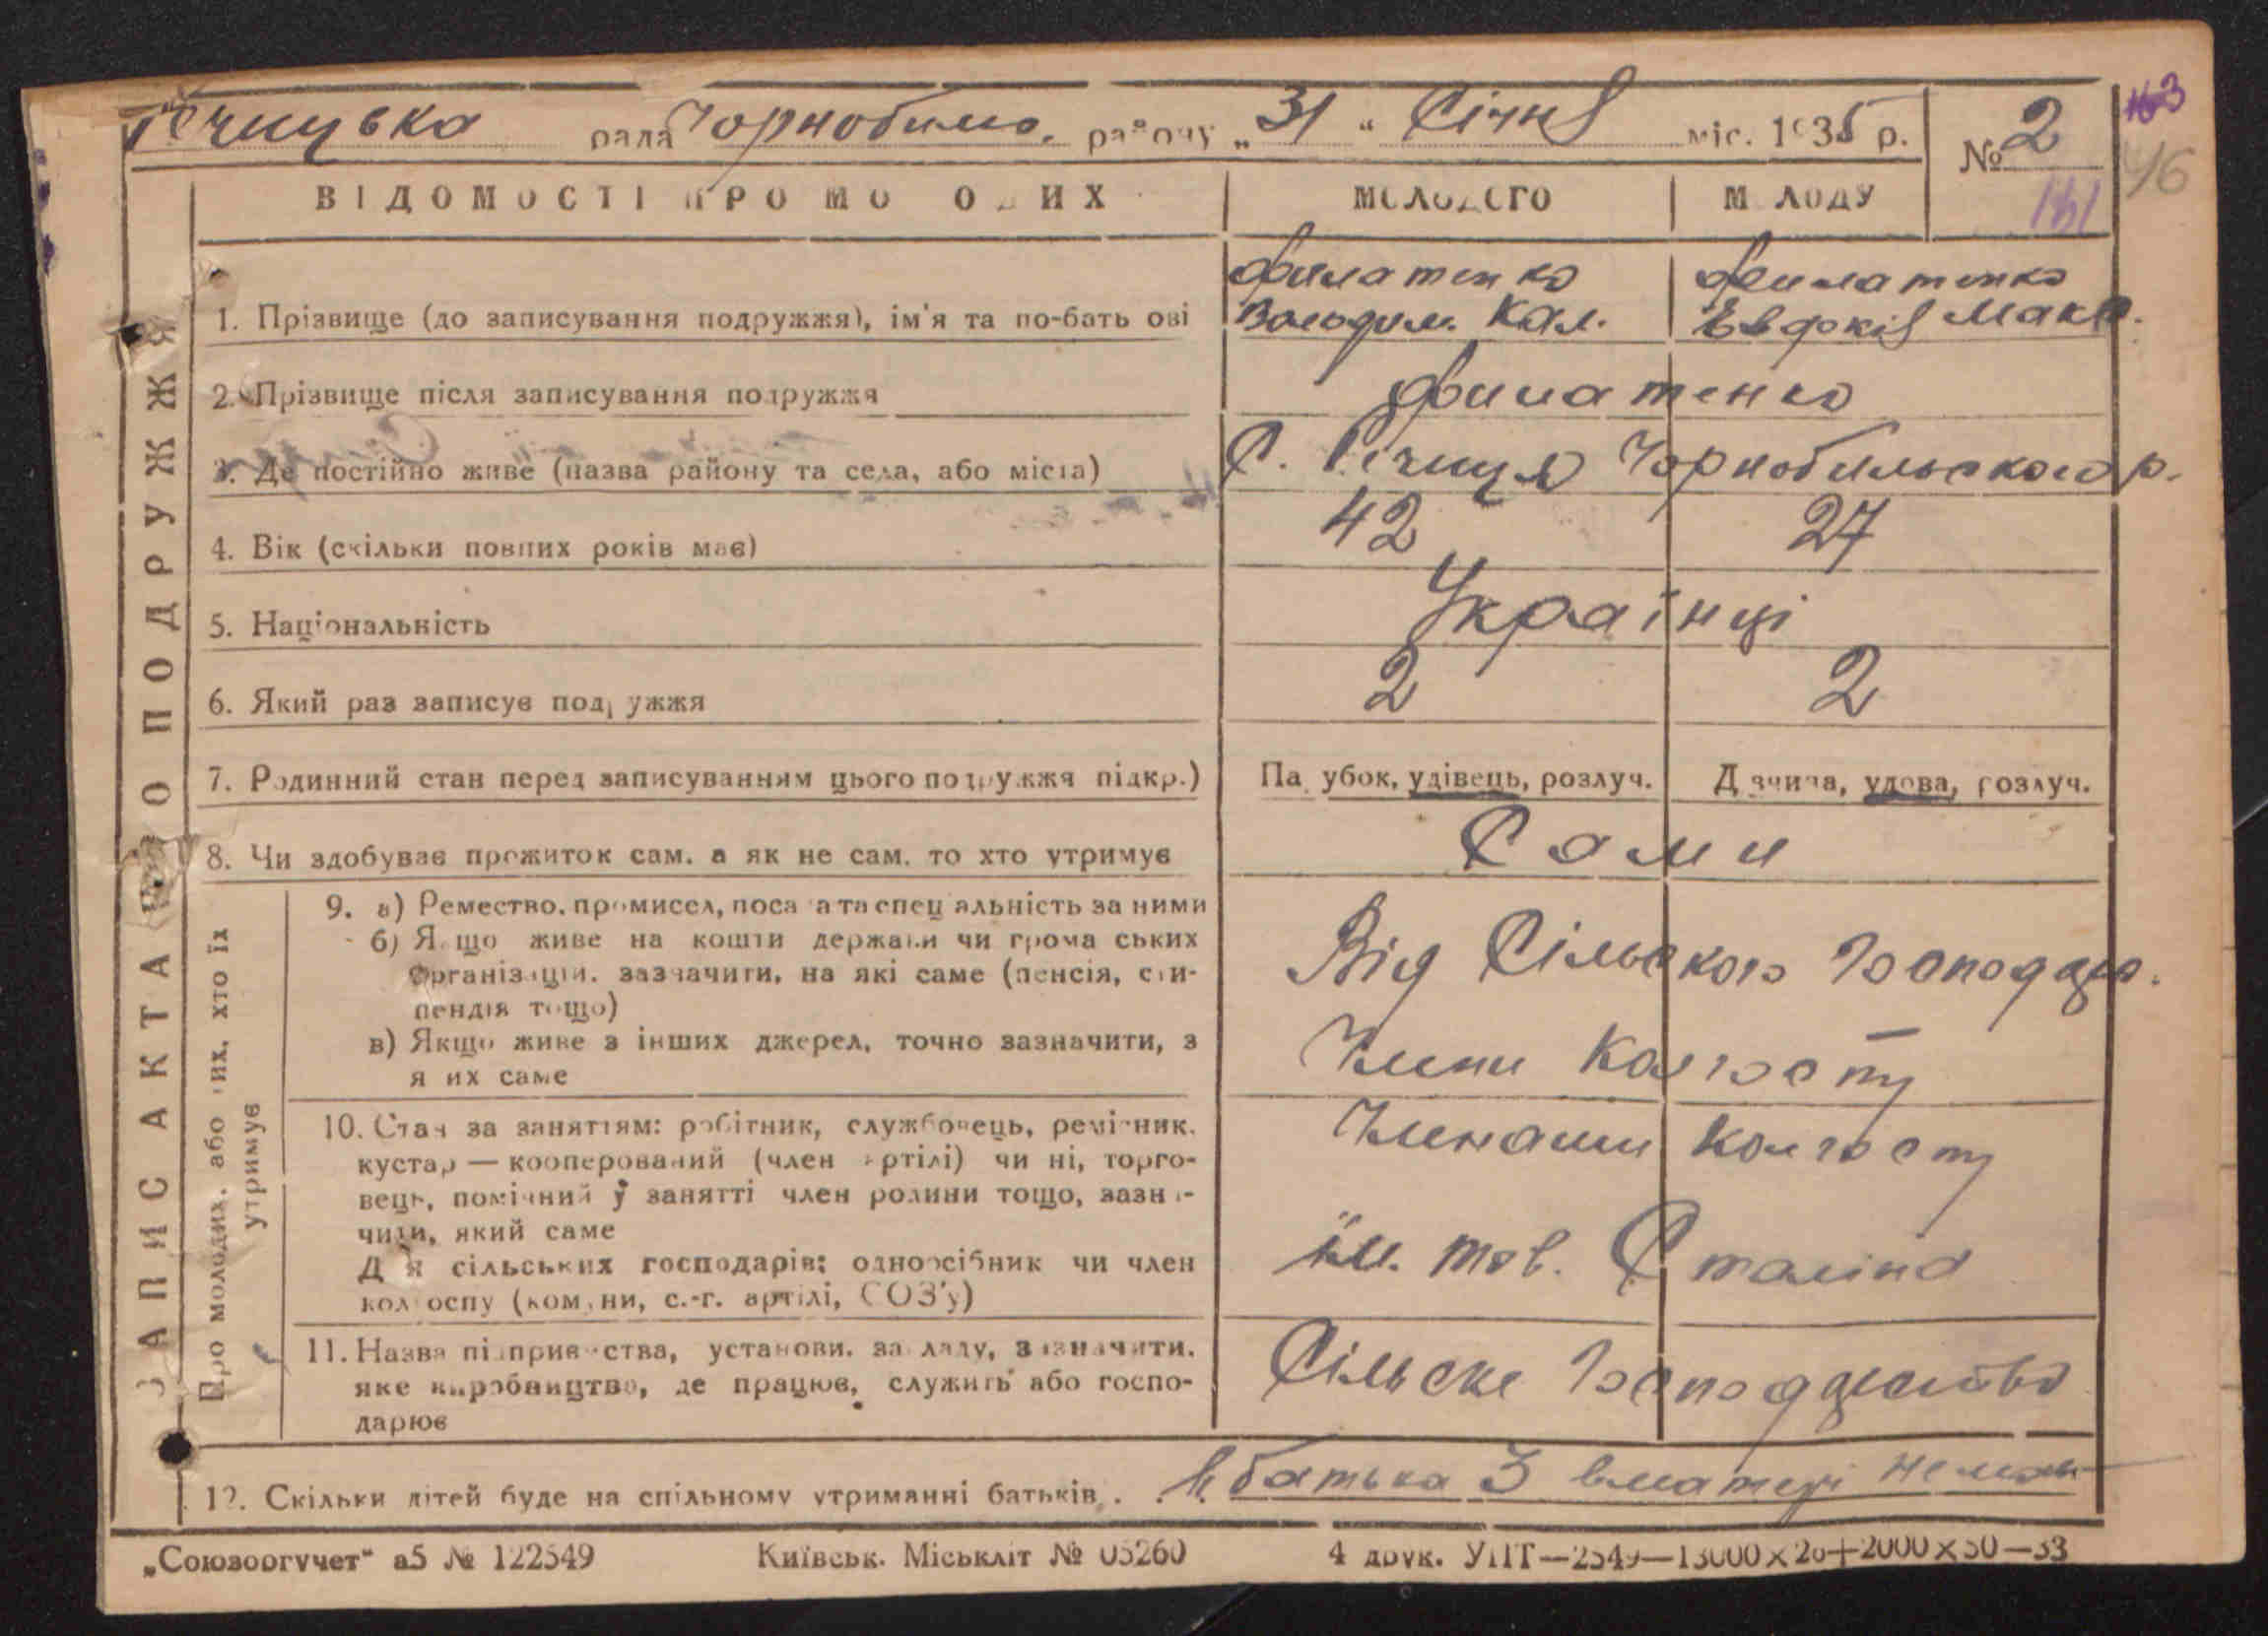 Річицька рада Чорнобильс. району „31" Січня міс. 1935 р. № 2
163
46
ВІДОМОСТІ ПРО МОЛОДИХ
МОЛОДОГО
МОЛОДУ
181
1. Прізвище (до записування подружжя), ім'я та по-батькові
Филатенко Володим. Кал.
Филатенко Евдокія Мак.
2. Прізвище після записування подружжя
Филатенко
3. Де постійно живе (назва району та села, або міста)
С. Річиця Чорнобильського р.
4. Вік (скільки повних років має)
42
27
5. Національність
Українці
6. Який раз записує подружжя
2
2
7. Родинний стан перед записуванням цього подружжя підкр.)
Парубок, удівець, розлуч.
Дівчина, удова, розлуч.
8. Чи здобуває прожиток сам, а як не сам, то хто утримує
Сами
ЗАПИС АКТА ПРО ПОДРУЖЖЯ
Про молодих, або тих, хто їх утримує
9. а) Ремество, промисел, посада та спеціальність за ними
б) Якщо живе на кошти держави чи громадських
організацій, зазначити, на які саме (пенсія, сти-
пендія тощо)
в) Якщо живе з інших джерел, точно зазначити, з
яких саме
Від Сільского Господар.
Члени Колгоспу
10. Стан за заняттям: робітник, службовець, ремісник,
кустар — кооперований (член артілі) чи ні, торго-
вець, помічний у занятті член родини тощо, зазна-
чити, який саме
Для сільських господарів: одноосібник чи член
колгоспу (комуни, с.-г. артілі, СОЗ'у)
Членами колгоспу
ім. тов. Сталіна
11. Назва підприємства, установи, закладу, зазначити,
яке виробництво, де працює, служить або госпо-
дарює
Сільске Господарство
12. Скільки дітей буде на спільному утриманні батьків. .
В батька 3 в матері немає
„Союзоргучет" а5 № 122549
Київськ. Міськліт № 05260
4 друк. УПТ—2549—13000×20+2000×50—33